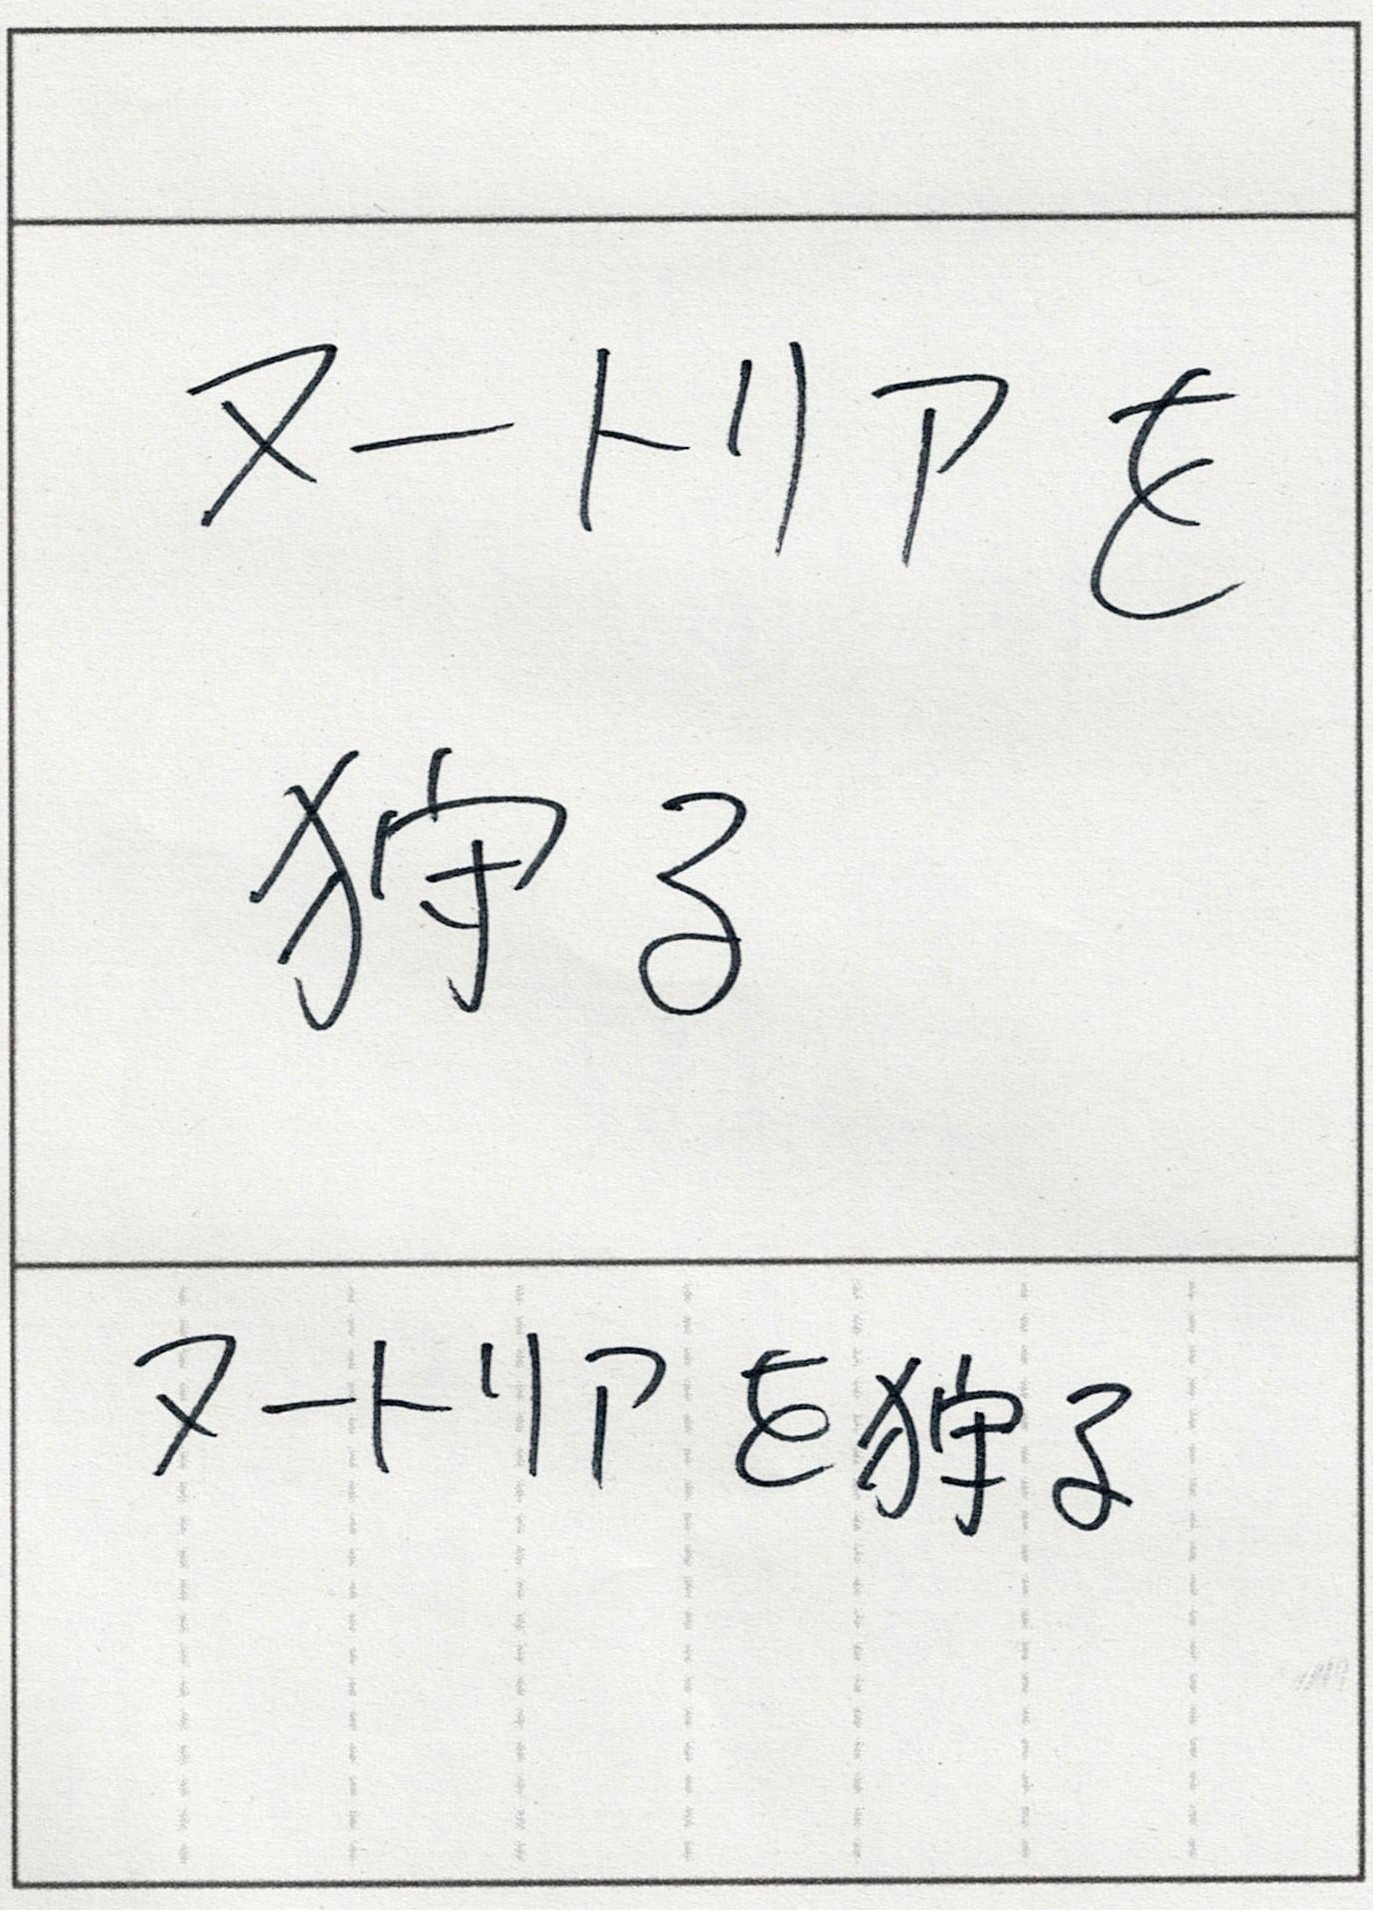 ヌートリアを
狩る
ヌートリアを狩る